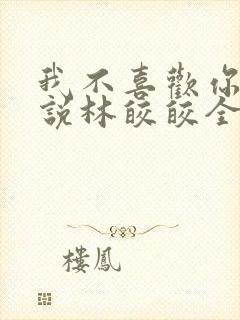 我不喜歡你
說林皎皎全
樓鳳